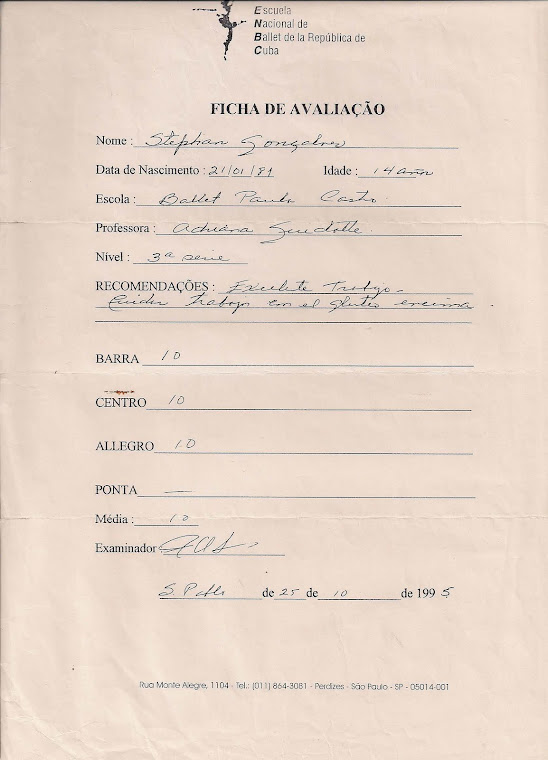 Escuela
Nacional de
Ballet de la República de
Cuba
FICHA DE AVALIAÇÃO
Nome : Stephan Gonçalves
Data de Nascimento : 21/01/81 Idade : 14 años
Escola : Ballet Paula Castro.
Professora : Adriana
Nível : 3ª serie
RECOMENDAÇÕES : Excelente Trabajo -
Cuidar trabajo con el gluteo encima .
BARRA 10
CENTRO 10
ALLEGRO 10
PONTA —
Média : 10
Examinador
S. Paulo de 25 de 10 de 1995
Rua Monte Alegre, 1104 - Tel.: (011) 864-3081 - Perdizes - São Paulo - SP - 05014-001